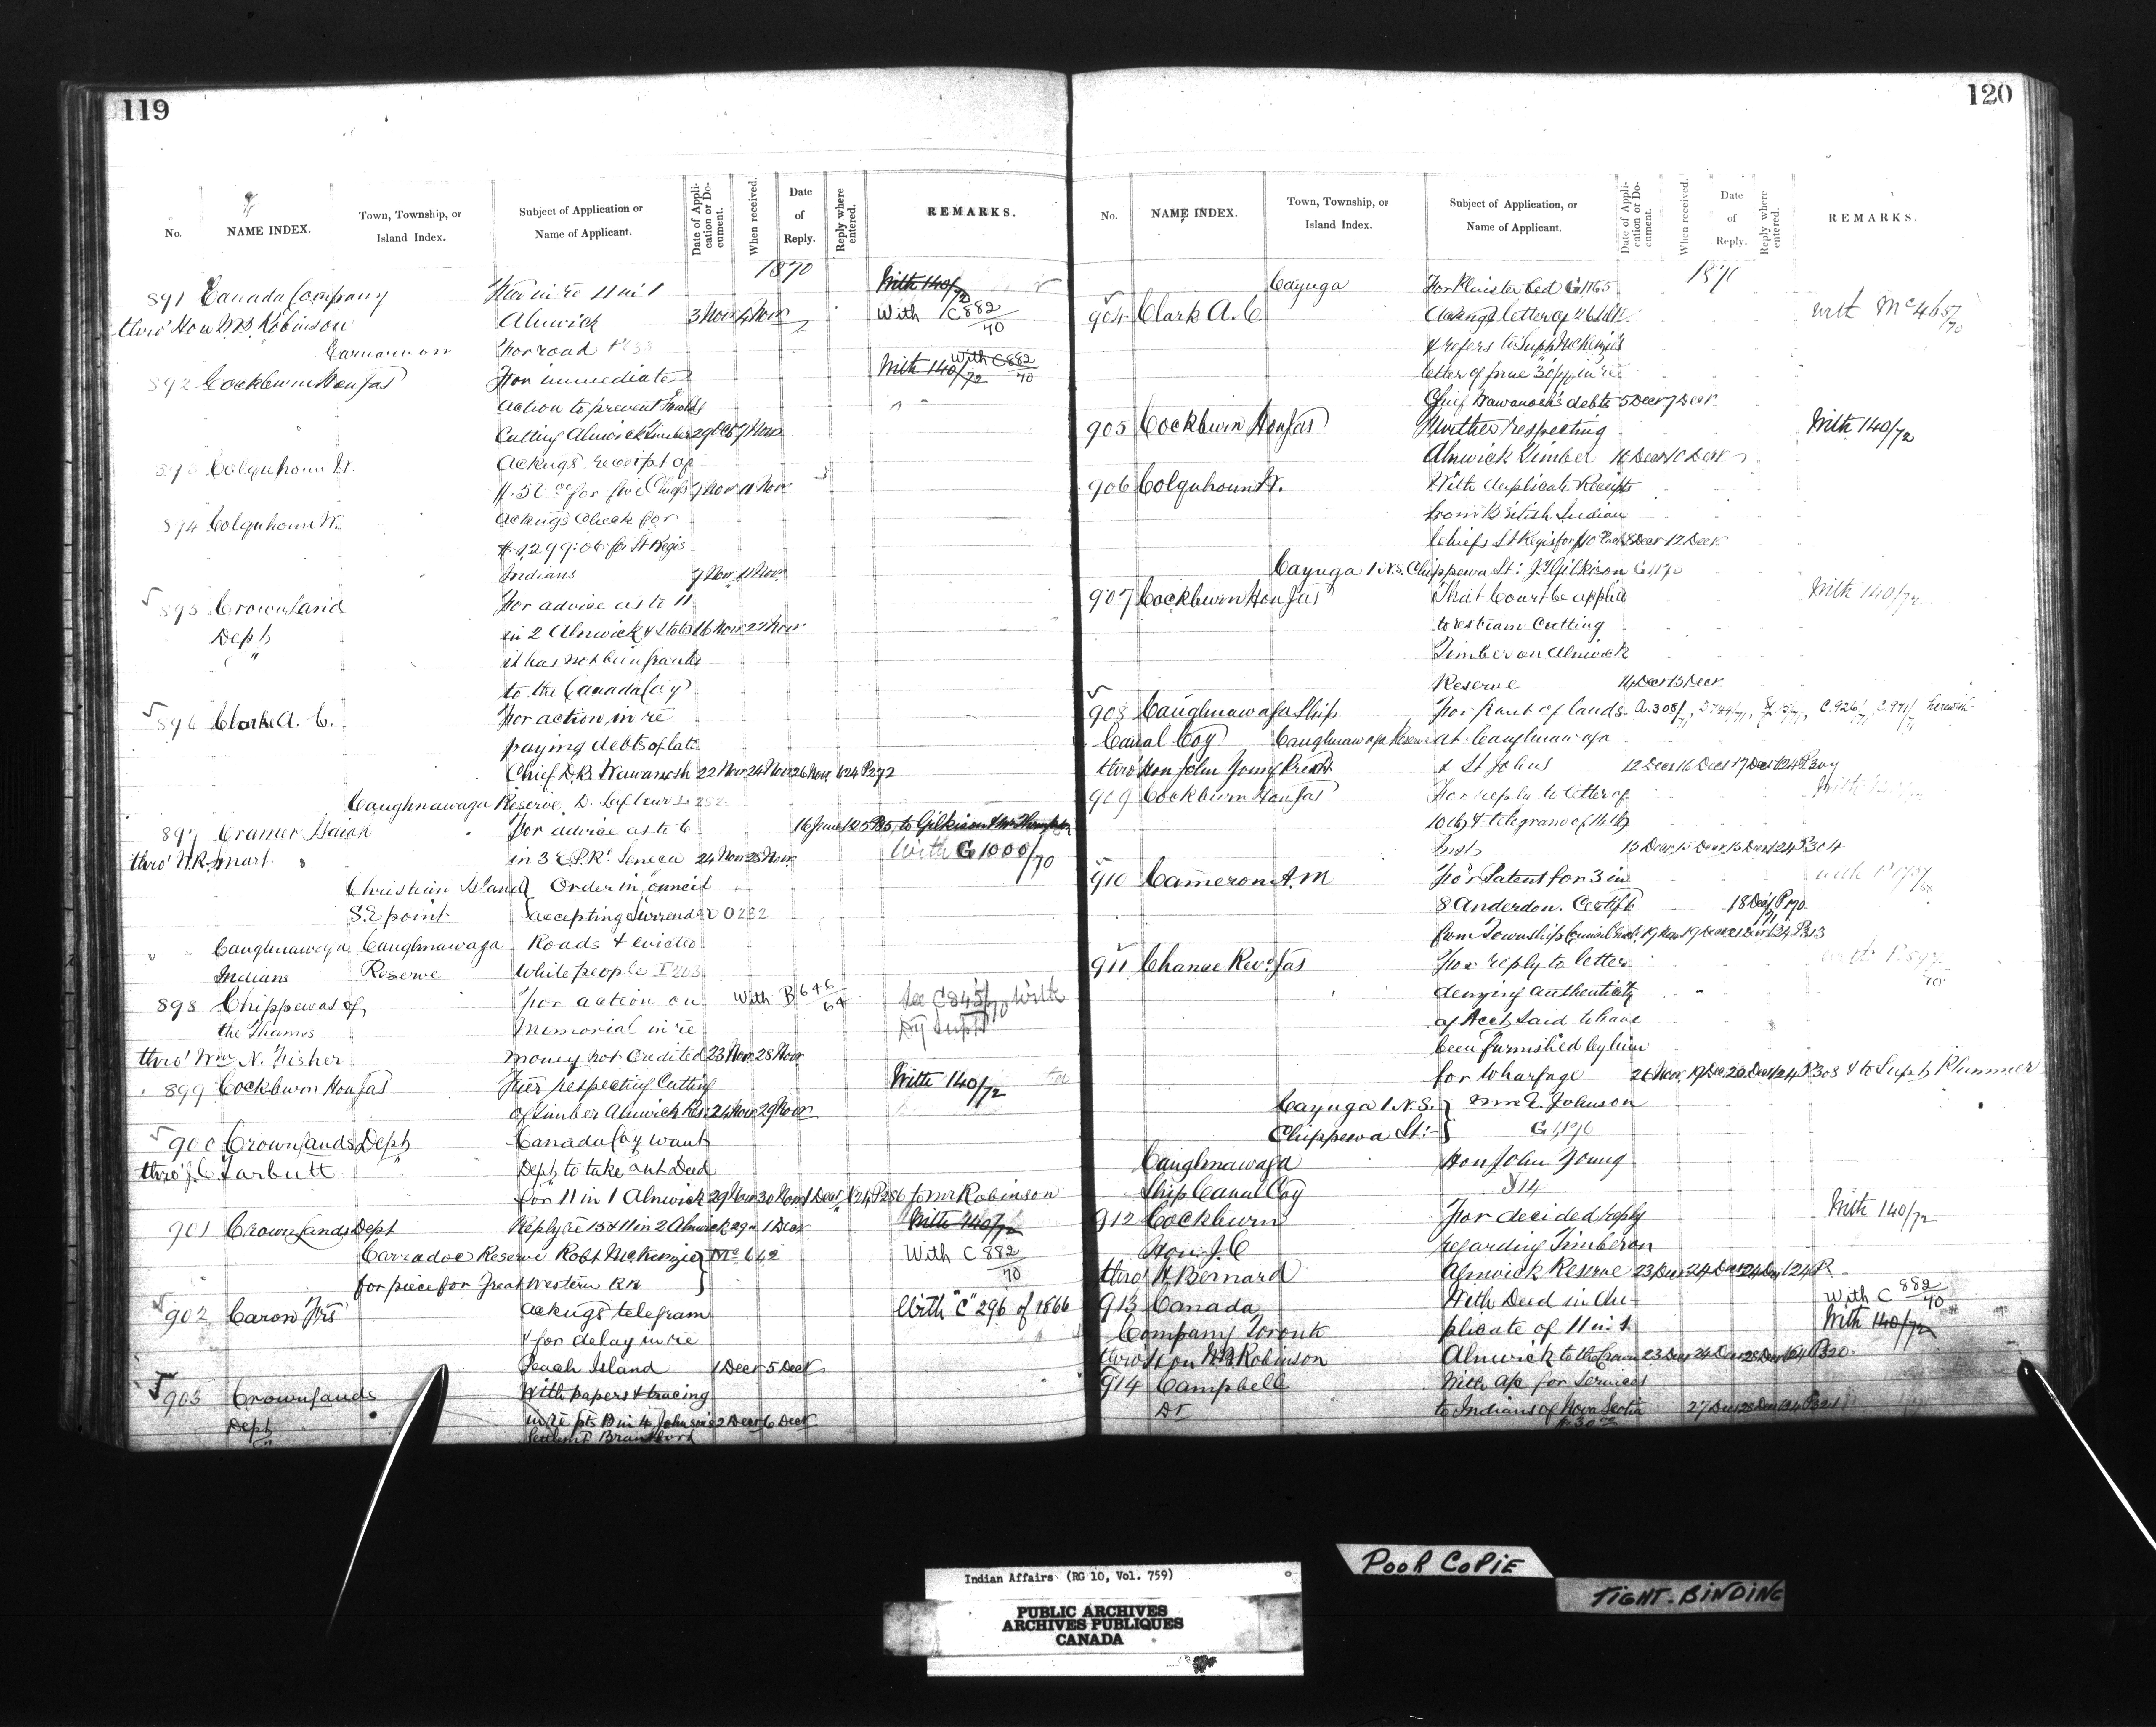 119
No.
NAME INDEX.
Town, Township, or Island Index.
Subject of Application or Name of Applicant.
Date of Application or Document.
When received.
Date of Reply.
Reply where entered.
REMARKS.
1870
891 Canada Company
thro' Hon W.B. Robinson
in re 11 in 1
Alnwick 3 Nov 4 Nov
With 140/72
With C882/70
For road
892 Cockburn Hon Jas
For immediate
action to prevent
cutting Alnwick timber 29 Oct 7 Nov
With 140/72 With C882/70
893 Colquhoun W.
Ackngs. receipt of
$50 00 for five Chiefs 9 Nov 11 Nov
894 Colquhoun W.
Ackngs check for
$1299.06 for St Regis
Indians 9 Nov 11 Nov
895 Crown Land
Dept
For advice as to 11
in 2 Alnwick & states 16 Nov 22 Nov
it has not been granted
to the Canada Coy
896 Clarke A. C.
For action in re
paying debts of late
Chief D.R. Wawanosh 22 Nov 24 Nov 26 Nov 24 P272
Caughnawaga Reserve, D. Lafleur
897 Cramer Isaiah
thro' N.R. Smart
For advice as to 6
in 3 E.P.Rd Seneca 24 Nov 28 Nov
16 June 125 P85 to Gilkison & Mr Thompson
With G1000/70
Christian Island Order in Council
S.E point accepting Surrender O232
Caughnawaga Caughnawaga Roads & evicted
Indians Reserve White people
898 Chippewas of
the Thames
thro' Wm N. Fisher
For action on With B 646/64
Memorial in re
money not credited 23 Nov 28 Nov
See C845/70 with
Dy Supt
899 Cockburn Hon Jas
Fur respecting Cutting
of timber Alnwick Res. 24 Nov 29 Nov
With 140/72
900 Crown Lands Dept
thro' J.C. Tarbutt
Canada Coy want
Dept to take out Deed
for 11 in 1 Alnwick 29 Nov 30 Nov 1 Dec 24 P286 to Mr Robinson
901 Crown Lands Dept
Reply re 15 & 11 in 2 Alnwick 29 1 Dec
With 140/72
Carradoc Reserve Robt McKenzie Mc 642
for piece for Great Western RR
With C 882/70
902 Caron Frs
Ackngs telegram
& for delay in re
Peach Island 1 Dec 5 Dec
With "C" 296 of 1866
903 Crown Lands
Dept
With papers & tracing
in re pts B in 4 Johnsons 2 Dec 6 Dec
Settlemt Brantford
120
No.
NAME INDEX.
Town, Township, or Island Index.
Subject of Application, or Name of Applicant.
Date of Application or Document.
When received.
Date of Reply.
Reply where entered.
REMARKS.
1870
Cayuga
G1165
904 Clark A. C
Ackngs letter of 26
& refers to Supt McKenzie's
letter of June 30 in re
Chief Wawanosh's debts 5 Dec 7 Dec
With Mc 465/70
905 Cockburn Hon Jas
Further respecting
Alnwick Timber 10 Dec
With 140/72
906 Colquhoun W.
With duplicate Receipts
from British Indian
Chiefs St Regis for $10 Each 8 Dec 12 Dec
Cayuga 1 N.S. Chippewa St: J.T. Gilkison G1190
907 Cockburn Hon Jas
That Court be applied
to restrain Cutting
Timber on Alnwick
Reserve 14 Dec 15 Dec
With 140/72
908 Caughnawaga Ship
Canal Coy Caughnawaga Reserve
thro' Hon John Young Presdt
For grant of lands
at Caughnawaga
& St Johns 12 Dec 16 Dec 17 Dec 24 P309
909 Cockburn Hon Jas
For reply to letter of
10th & telegram of 14th
Inst 15 Dec 15 Dec 15 Dec 24 P304
910 Cameron A. M
For Patent for 3 in
8 Anderdon. Certifte
from Township Council
911 Chance Revd Jas
For reply to letter
denying authenticity
of Acct said to have
been furnished by him
for Wharfage 26 Nov 19 Dec 20 Dec 24 P308 & to Supt Plummer
Cayuga 1 N.S. Mrs E. Johnson
Chippewa St: G1196
Caughnawaga Hon John Young
Ship Canal Coy
912 Cockburn
Hon: J. C
thro' H Bernard
For decided reply
regarding Timber on
Alnwick Reserve 23 Dec 24 Dec 24 Dec 24 P
With 140/72
913 Canada
Company Toronto
thro' Hon W.B. Robinson
With Deed in du-
plicate of 11 in 1
Alnwick to the Crown 23 Dec 24 Dec 28 Dec 24 P320
With C 882/70
With 140/72
914 Campbell
Dr
With a/c for Services
to Indians of Nova Scotia 27 Dec 28 Dec 24 P321
$30.00
POOR COPIE
TIGHT-BINDING
Indian Affairs (RG 10, Vol. 759)
PUBLIC ARCHIVES
ARCHIVES PUBLIQUES
CANADA